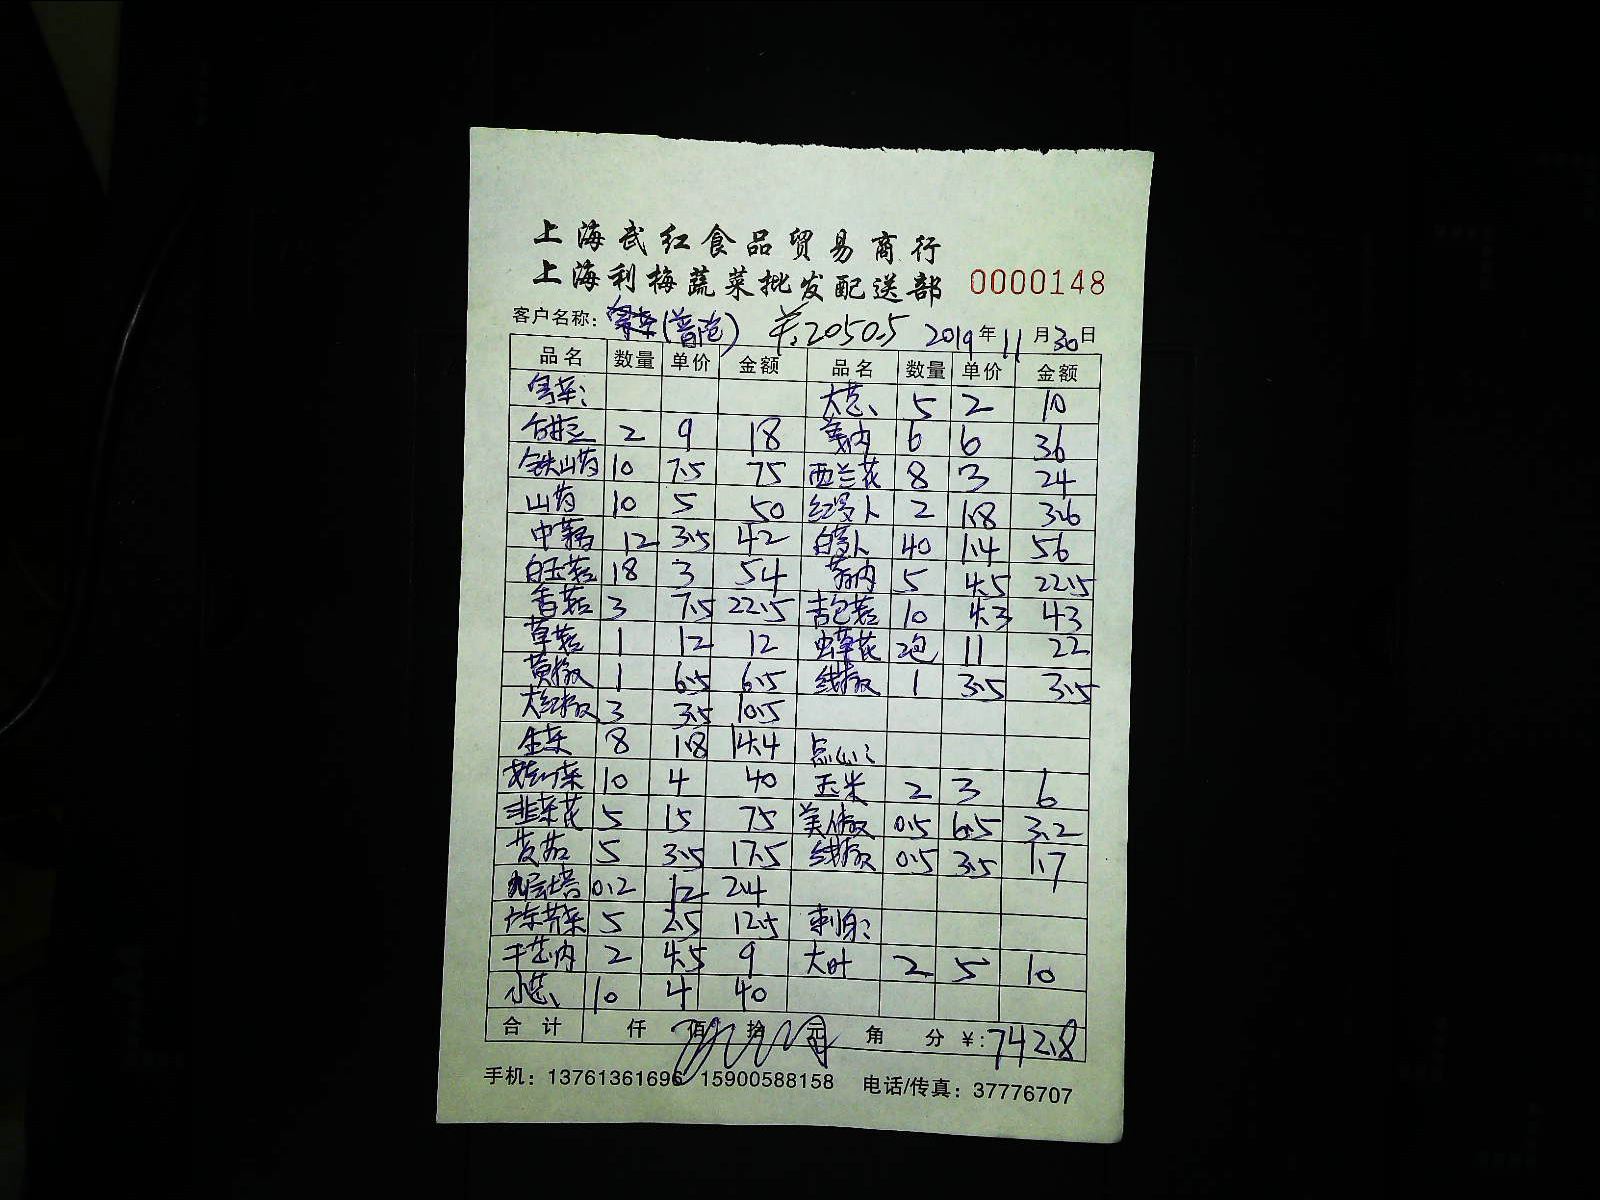 上海武红食品贸易商行
上海利梅蔬菜批发配送部 0000148
客户名称: (普陀) ¥:2050.5 2019年11月30日
品名 数量 单价 金额 品名 数量 单价 金额
大葱、 5 2 10
2 9 18 6 6 36
铁山药 10 7.5 75 西兰花 8 3 24
山药 10 5 50 红罗卜 2 1.8 3.6
中藕 12 3.5 42 白萝卜 40 1.4 56
白玉菇 18 3 54 5 4.5 22.5
香菇 3 7.5 22.5 杏包菇 10 4.3 43
草菇 1 12 12 虫草花 2包 11 22
黄椒 1 6.5 6.5 线椒 1 3.5 3.5
大红椒 3 3.5 10.5
生菜 8 1.8 14.4 点心:
10 4 40 玉米 2 3 6
韭菜花 5 15 75 美人椒 0.5 6.5 3.2
5 3.5 17.5 线椒 0.5 3.5 1.7
九层塔 0.2 12 2.4
广东芥菜 5 2.5 12.5 刺身:
干葱肉 2 4.5 9 大叶 2 5 10
小葱、 10 4 40
合计 仟 佰 拾 元 角 分 ¥:742.8
手机：13761361696 15900588158 电话/传真：37776707